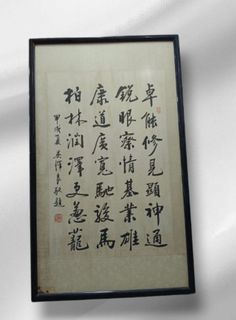 卓能修見顯神通
銳眼察情基業雄
康道廣寬馳駿馬
柏林潤澤更蔥蘢
甲戌夏